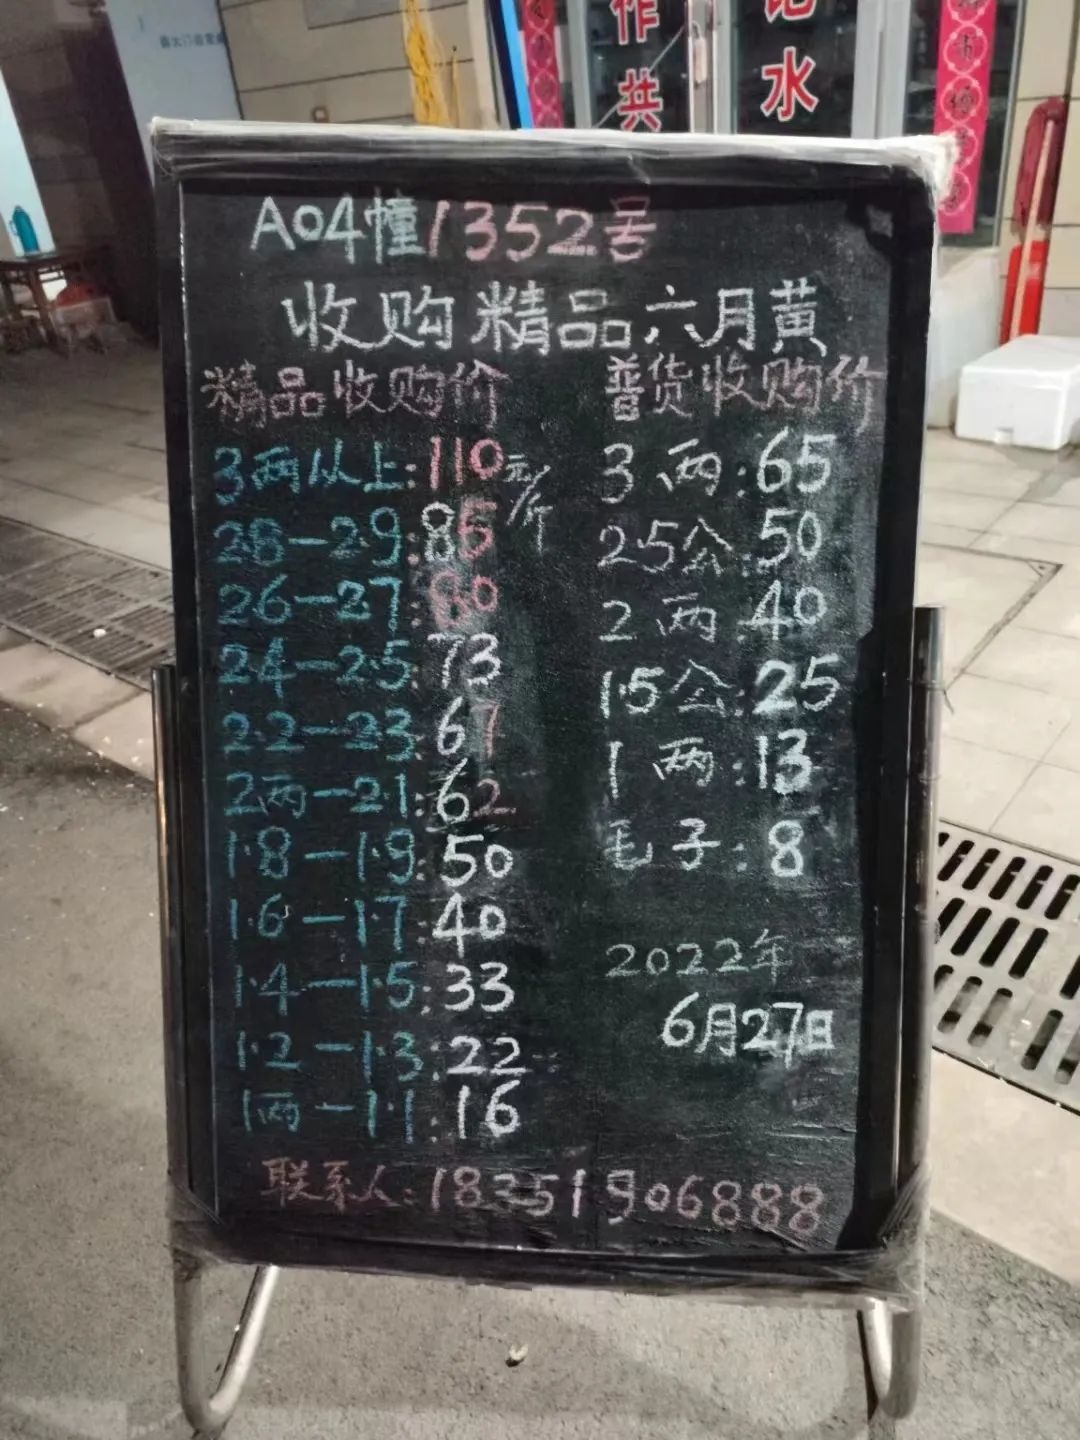 作共
记水
A04幢1352号
收购精品六月黄
精品收购价
3两以上:110元/斤
2.8-2.9:85
26-2.7:80
2.4-2.5:73
2.2-2.3:67
2两-2.1:62
1.8-1.9:50
1.6-1.7:40
1.4-1.5:33
1.2-1.3:22
1两-1.1:16
普货收购价
3两:65
2.5公:50
2两:40
1.5公:25
1两:13
毛子:8
2022年
6月27日
联系人:18351906888